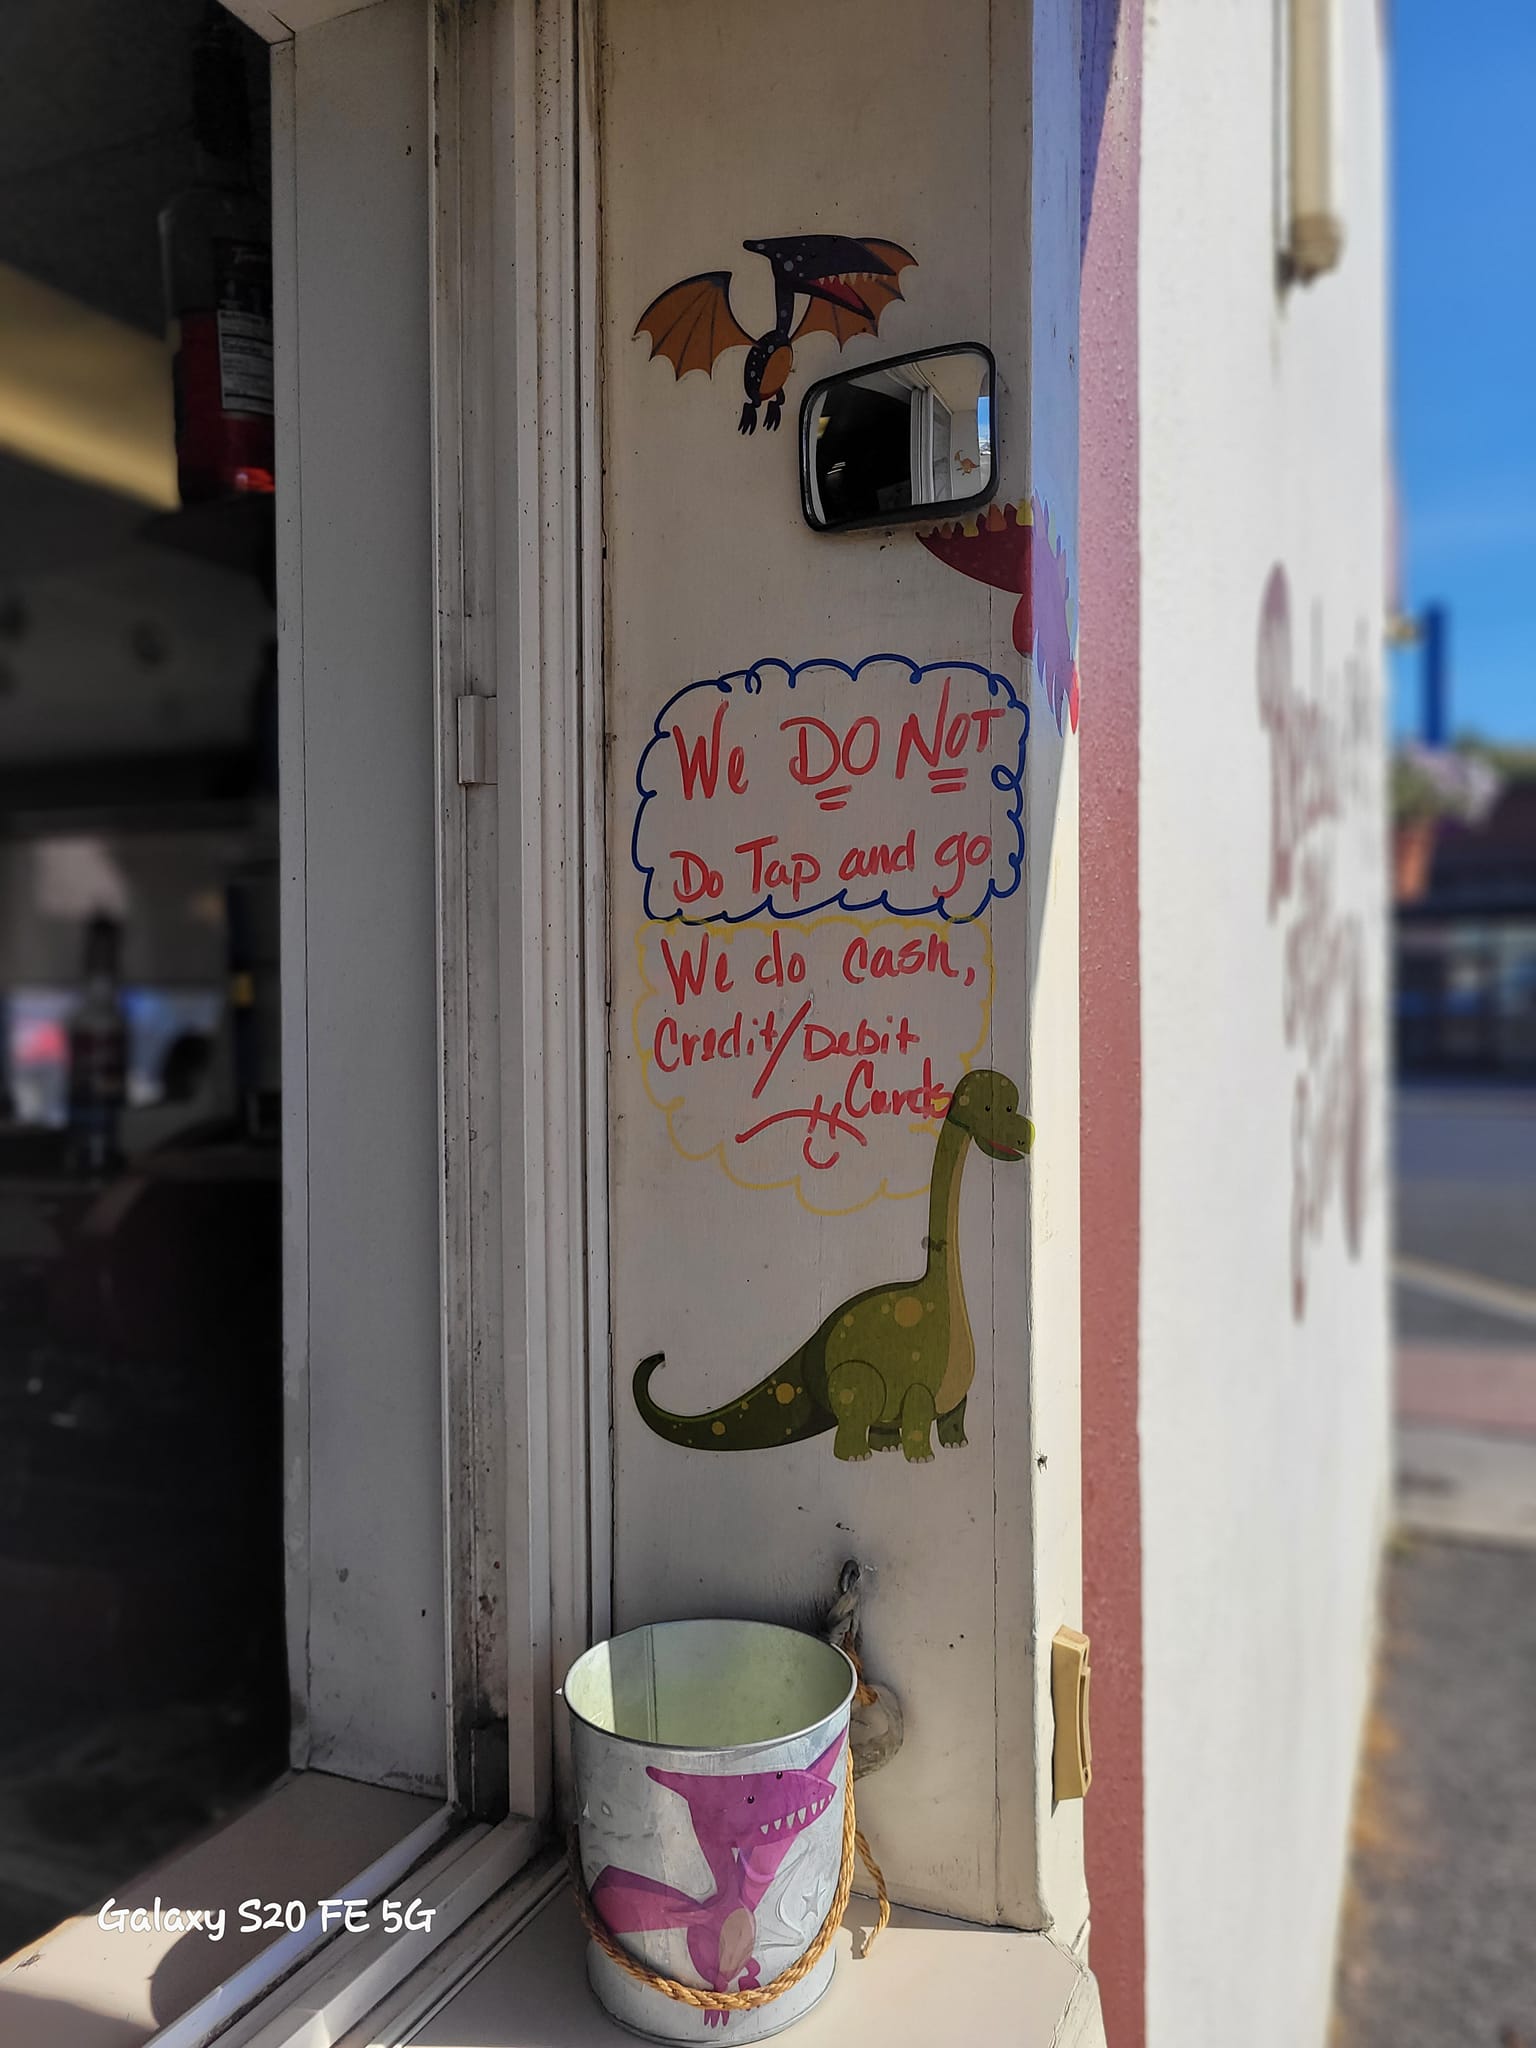 We DO NOT
Do Tap and go
We do cash,
Credit/Debit
Cards
Galaxy S20 FE 5G